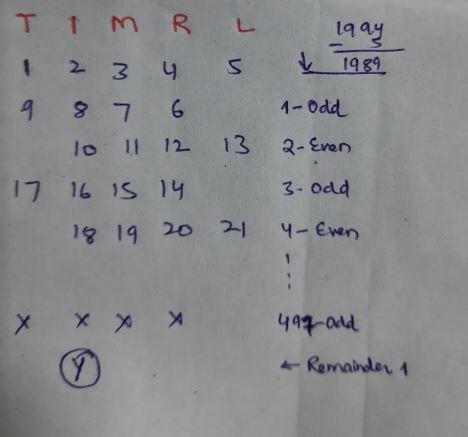 T I M R L
1994
- 5
1 2 3 4 5
↓ 1989
9 8 7 6 1-Odd
10 11 12 13 2-Even
17 16 15 14 3-Odd
18 19 20 21 4-Even
⋮
X X X X 497-Odd
Y ← Remainder 1